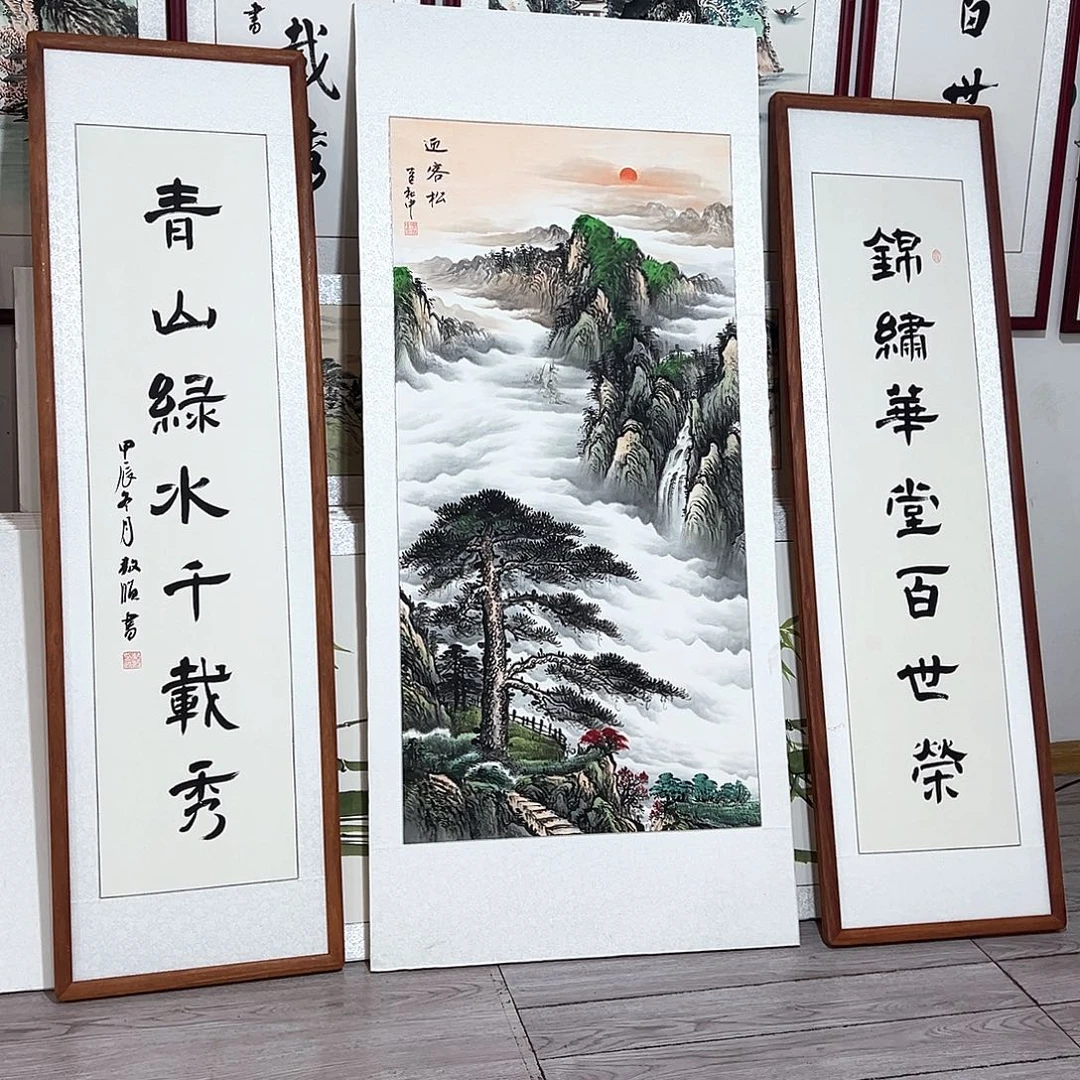 錦繡華堂百世榮
迎客松
青山緑水千載秀
甲辰年月
書
書
載秀
百世